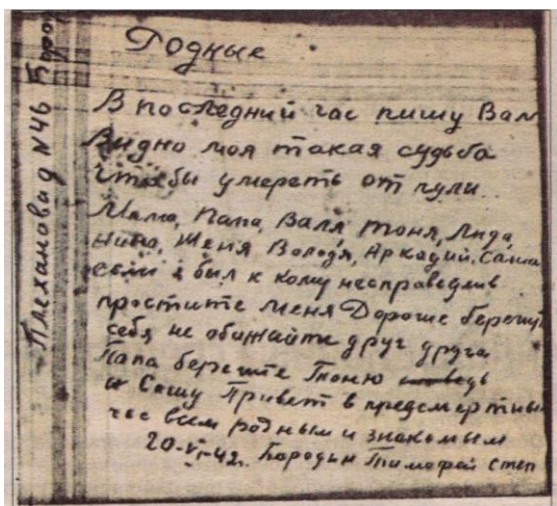 Родные
В последний час пишу Вам
Видно моя такая судьба
чтобы умереть от пули.
Мама, Папа, Валя, Тоня, Лида,
Нина, Женя Володя, Аркадий, Саша
если я был к кому несправедлив
простите меня Дорогие берегите
себя не обижайте друг друга
Папа берегите Тоню
и Сашу Привет в предсмертный
час всем родным и знакомым
20-VI-42г. Бородин Тимофей Степ
Плехановад N46 Бород